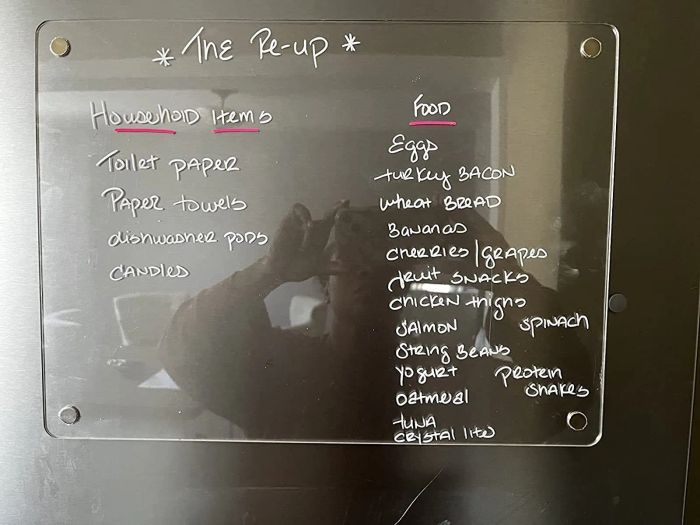 * The Re-up *
Household Items
Toilet paper
Paper towels
dishwasher pods
Candles
Food
Eggs
turkey Bacon
wheat Bread
Bananas
cherries/grapes
fruit snacks
chicken thighs
Salmon
spinach
String Beans
yogurt
protein
shakes
oatmeal
tuna
crystal lite